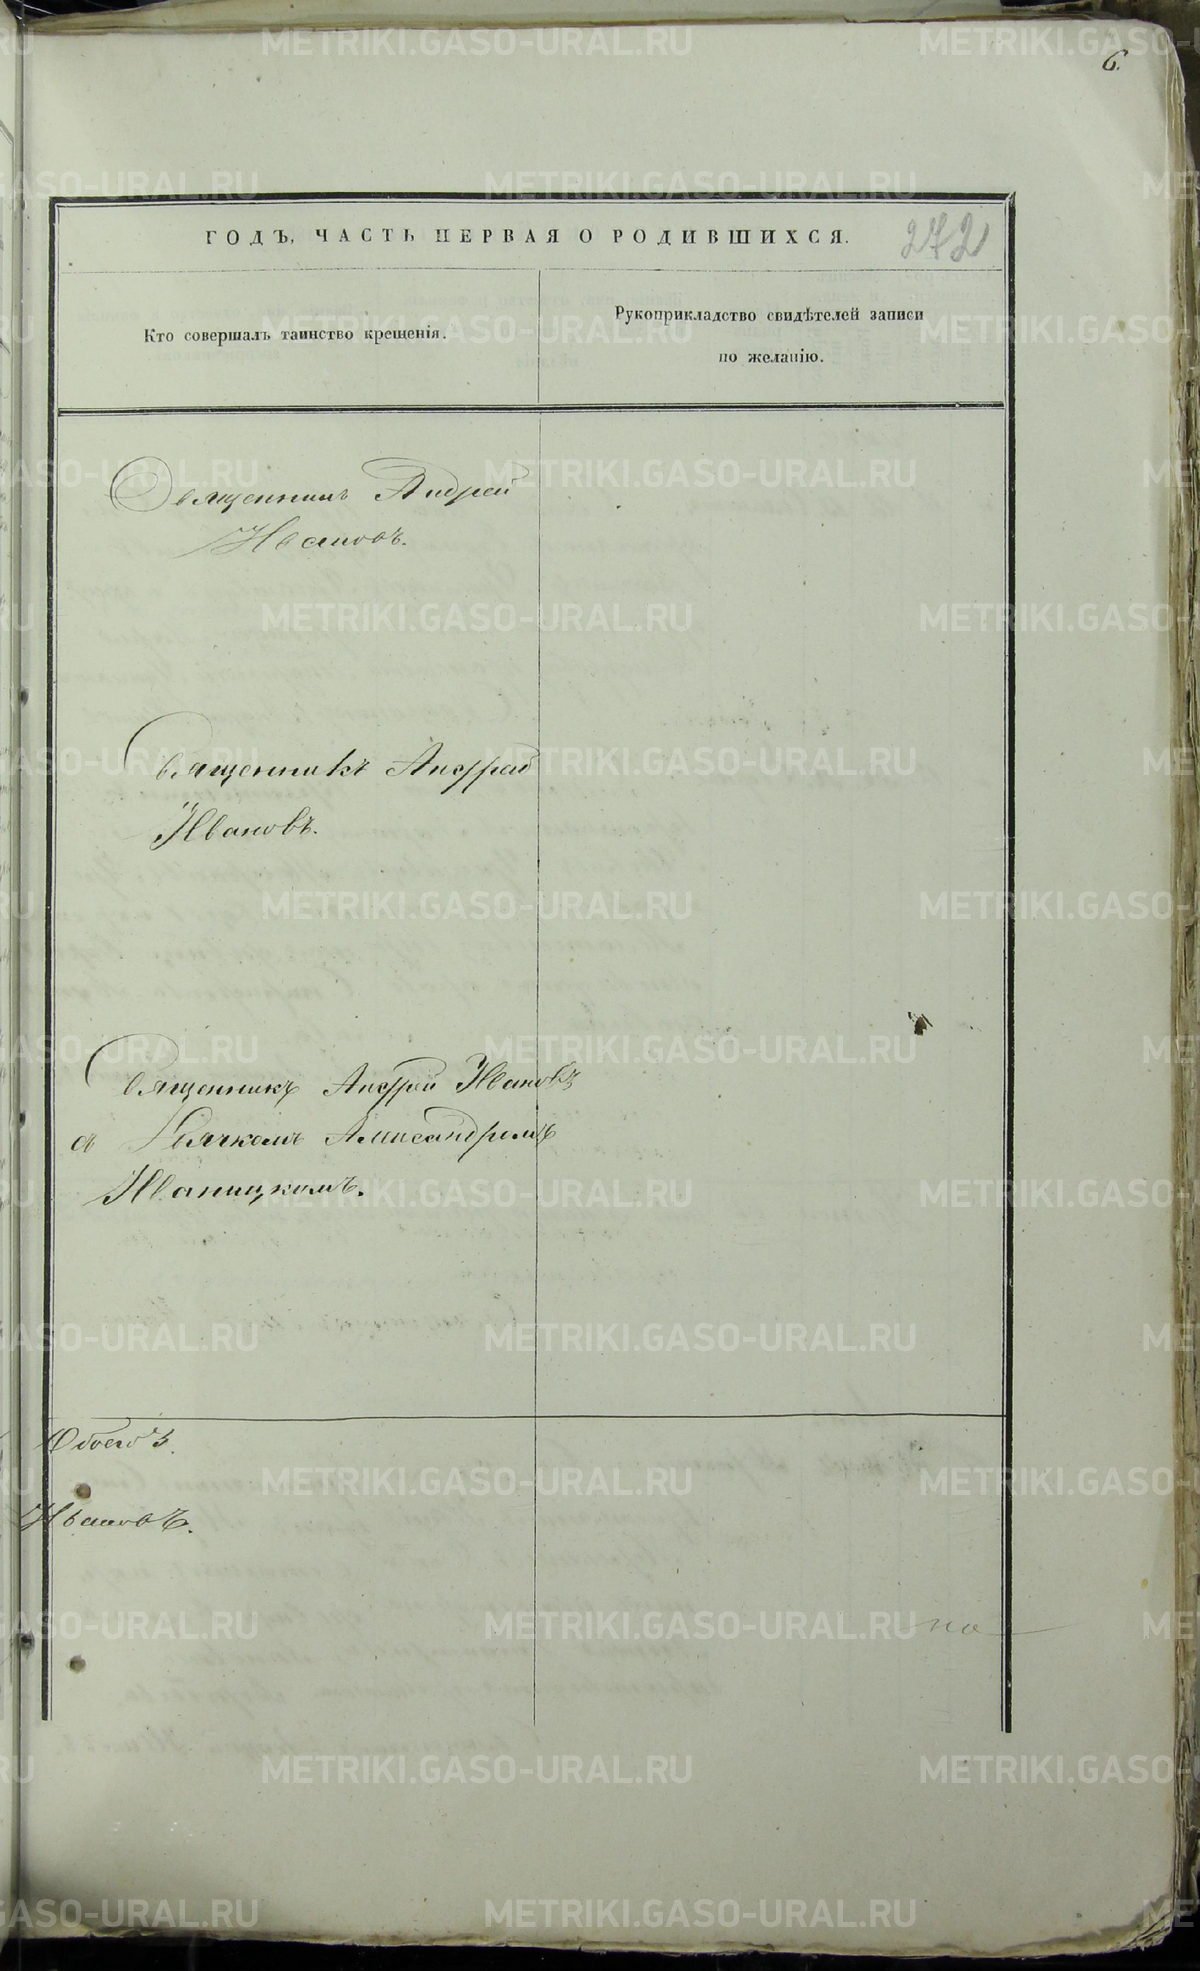 6.
ГОДЪ, ЧАСТЬ ПЕРВАЯ О РОДИВШИХСЯ.
272
Кто совершалъ таинство крещенія.
Рукоприкладство свидѣтелей записи
по желанію.
Священникъ Андрей
Ивановъ.
Священникъ Андрей
Ивановъ.
Священникъ Андрей Ивановъ
съ Дьячкомъ Александромъ
Иваницкомъ.
Обоего 3.
Ивановъ.
по
METRIKI.GASO-URAL.RU